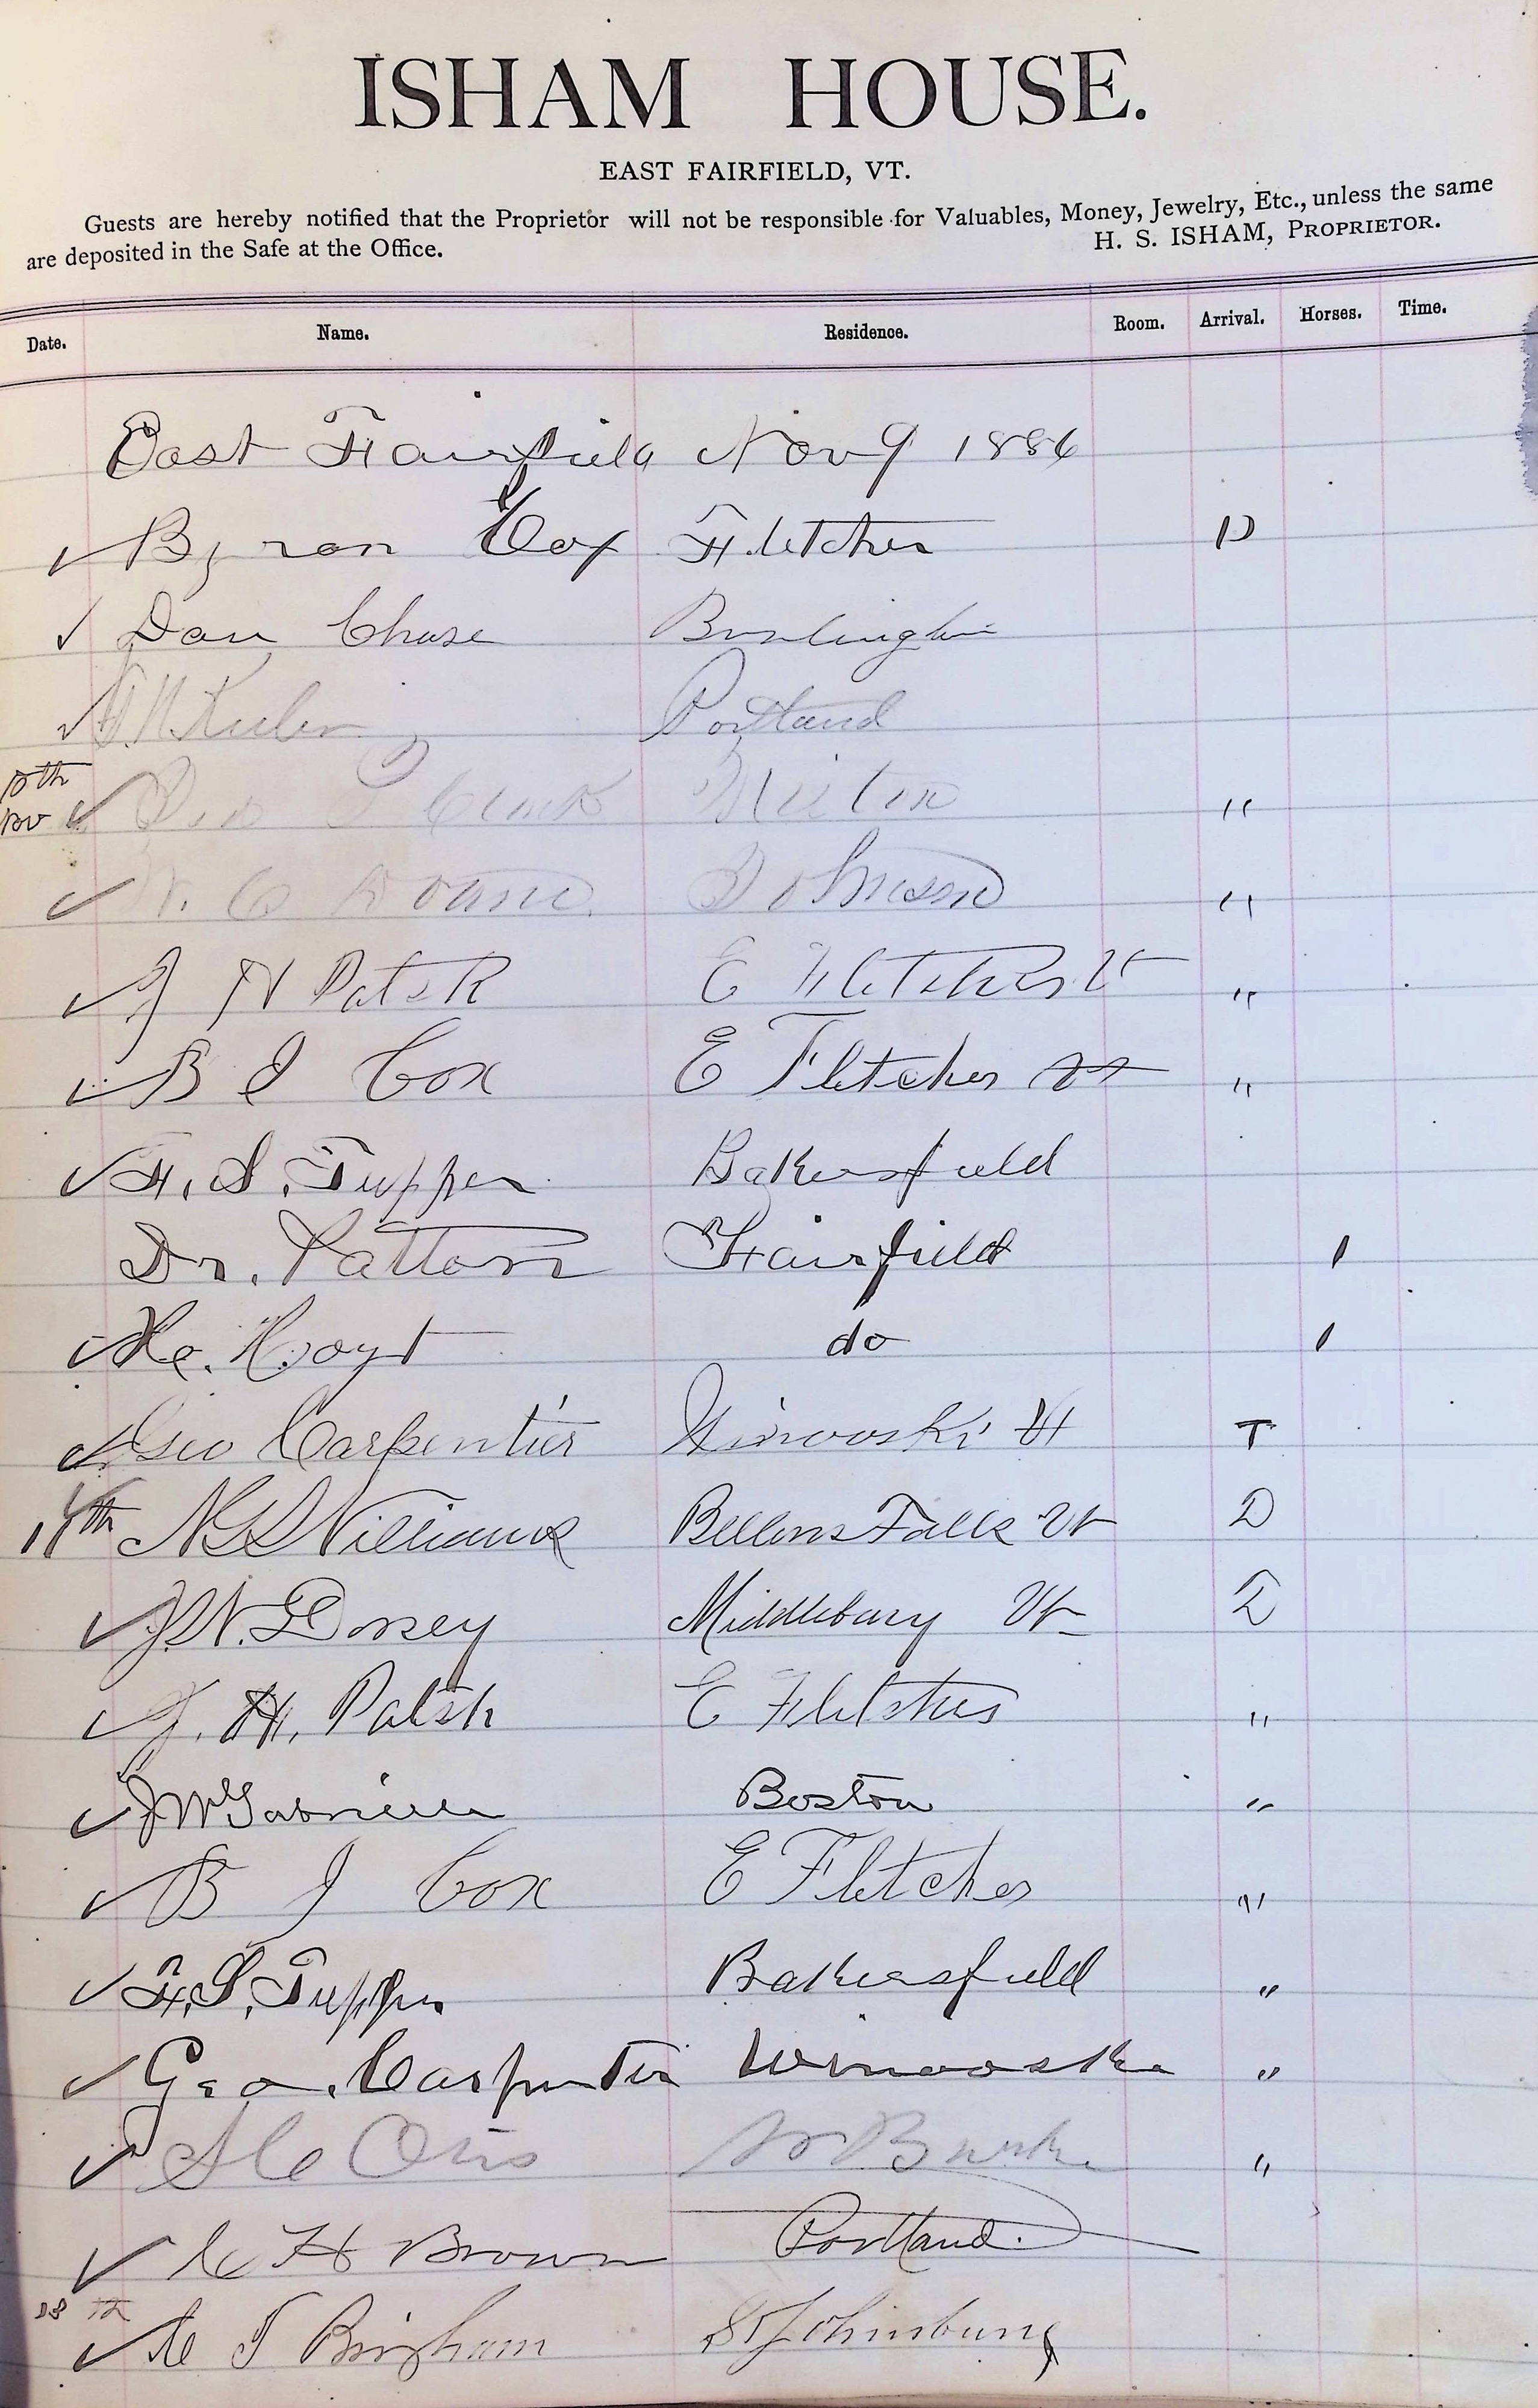 ISHAM HOUSE.
EAST FAIRFIELD, VT.
Guests are hereby notified that the Proprietor will not be responsible for Valuables, Money, Jewelry, Etc., unless the same
are deposited in the Safe at the Office.
H. S. ISHAM, PROPRIETOR.
Date. Name. Residence. Room. Arrival. Horses. Time.
East Fairfield Nov 9 1886
✓ Byron Cox Fletcher D
✓ Dan Chase Burlington
✓ Portland
10th
Nov ✓ Geo Clark Milton "
✓ C Doane Johnson "
✓ J H Patch E Fletcher Vt "
✓ B J Cox E Fletcher Vt "
✓ F. S. Tupper Bakersfield
Dr. Patton Fairfield 1
✓ Hoyt do 1
✓ Geo Carpentier Winooski Vt T
11th Williams Bellows Falls Vt D
✓ Dorsey Middlebury Vt D
✓ J. H. Patch E Fletcher "
✓ Boston "
✓ B J Cox E Fletcher "
✓ F. S. Tupper Bakersfield "
✓ Geo. Carpentier Winooski "
✓ Otis Burke "
✓ C H Brown Portland.
th
✓ Bingham St Johnsbury